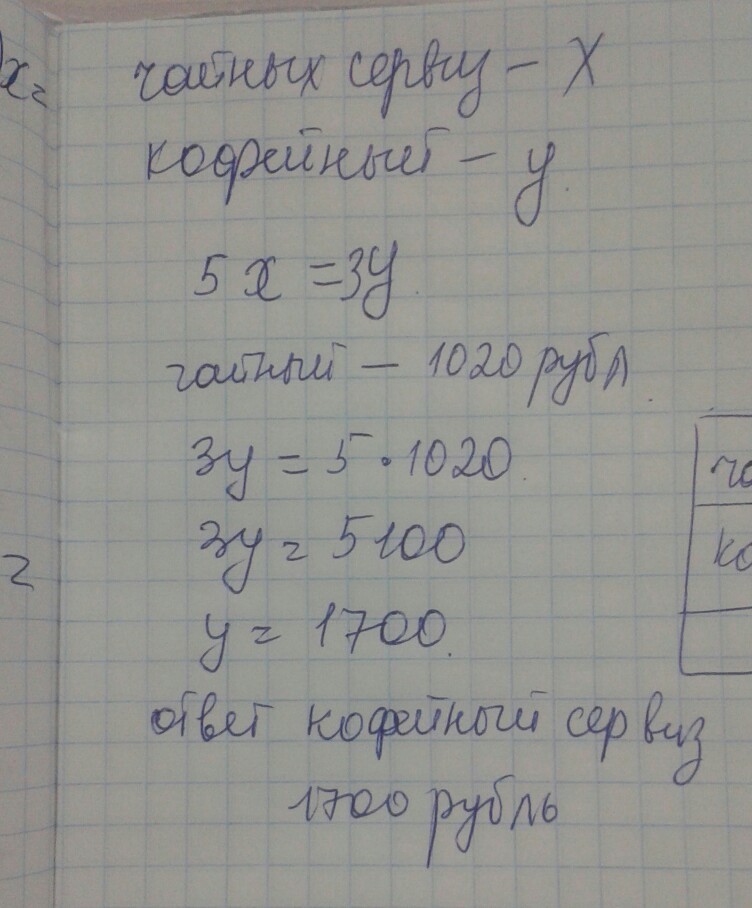 x =
чайных сервиз - X
кофейный - y.
5x = 3y
чайный - 1020 рубл.
3y = 5 · 1020.
ча
3y = 5100
ко
y = 1700.
ответ кофейный сервиз
1700 рубль